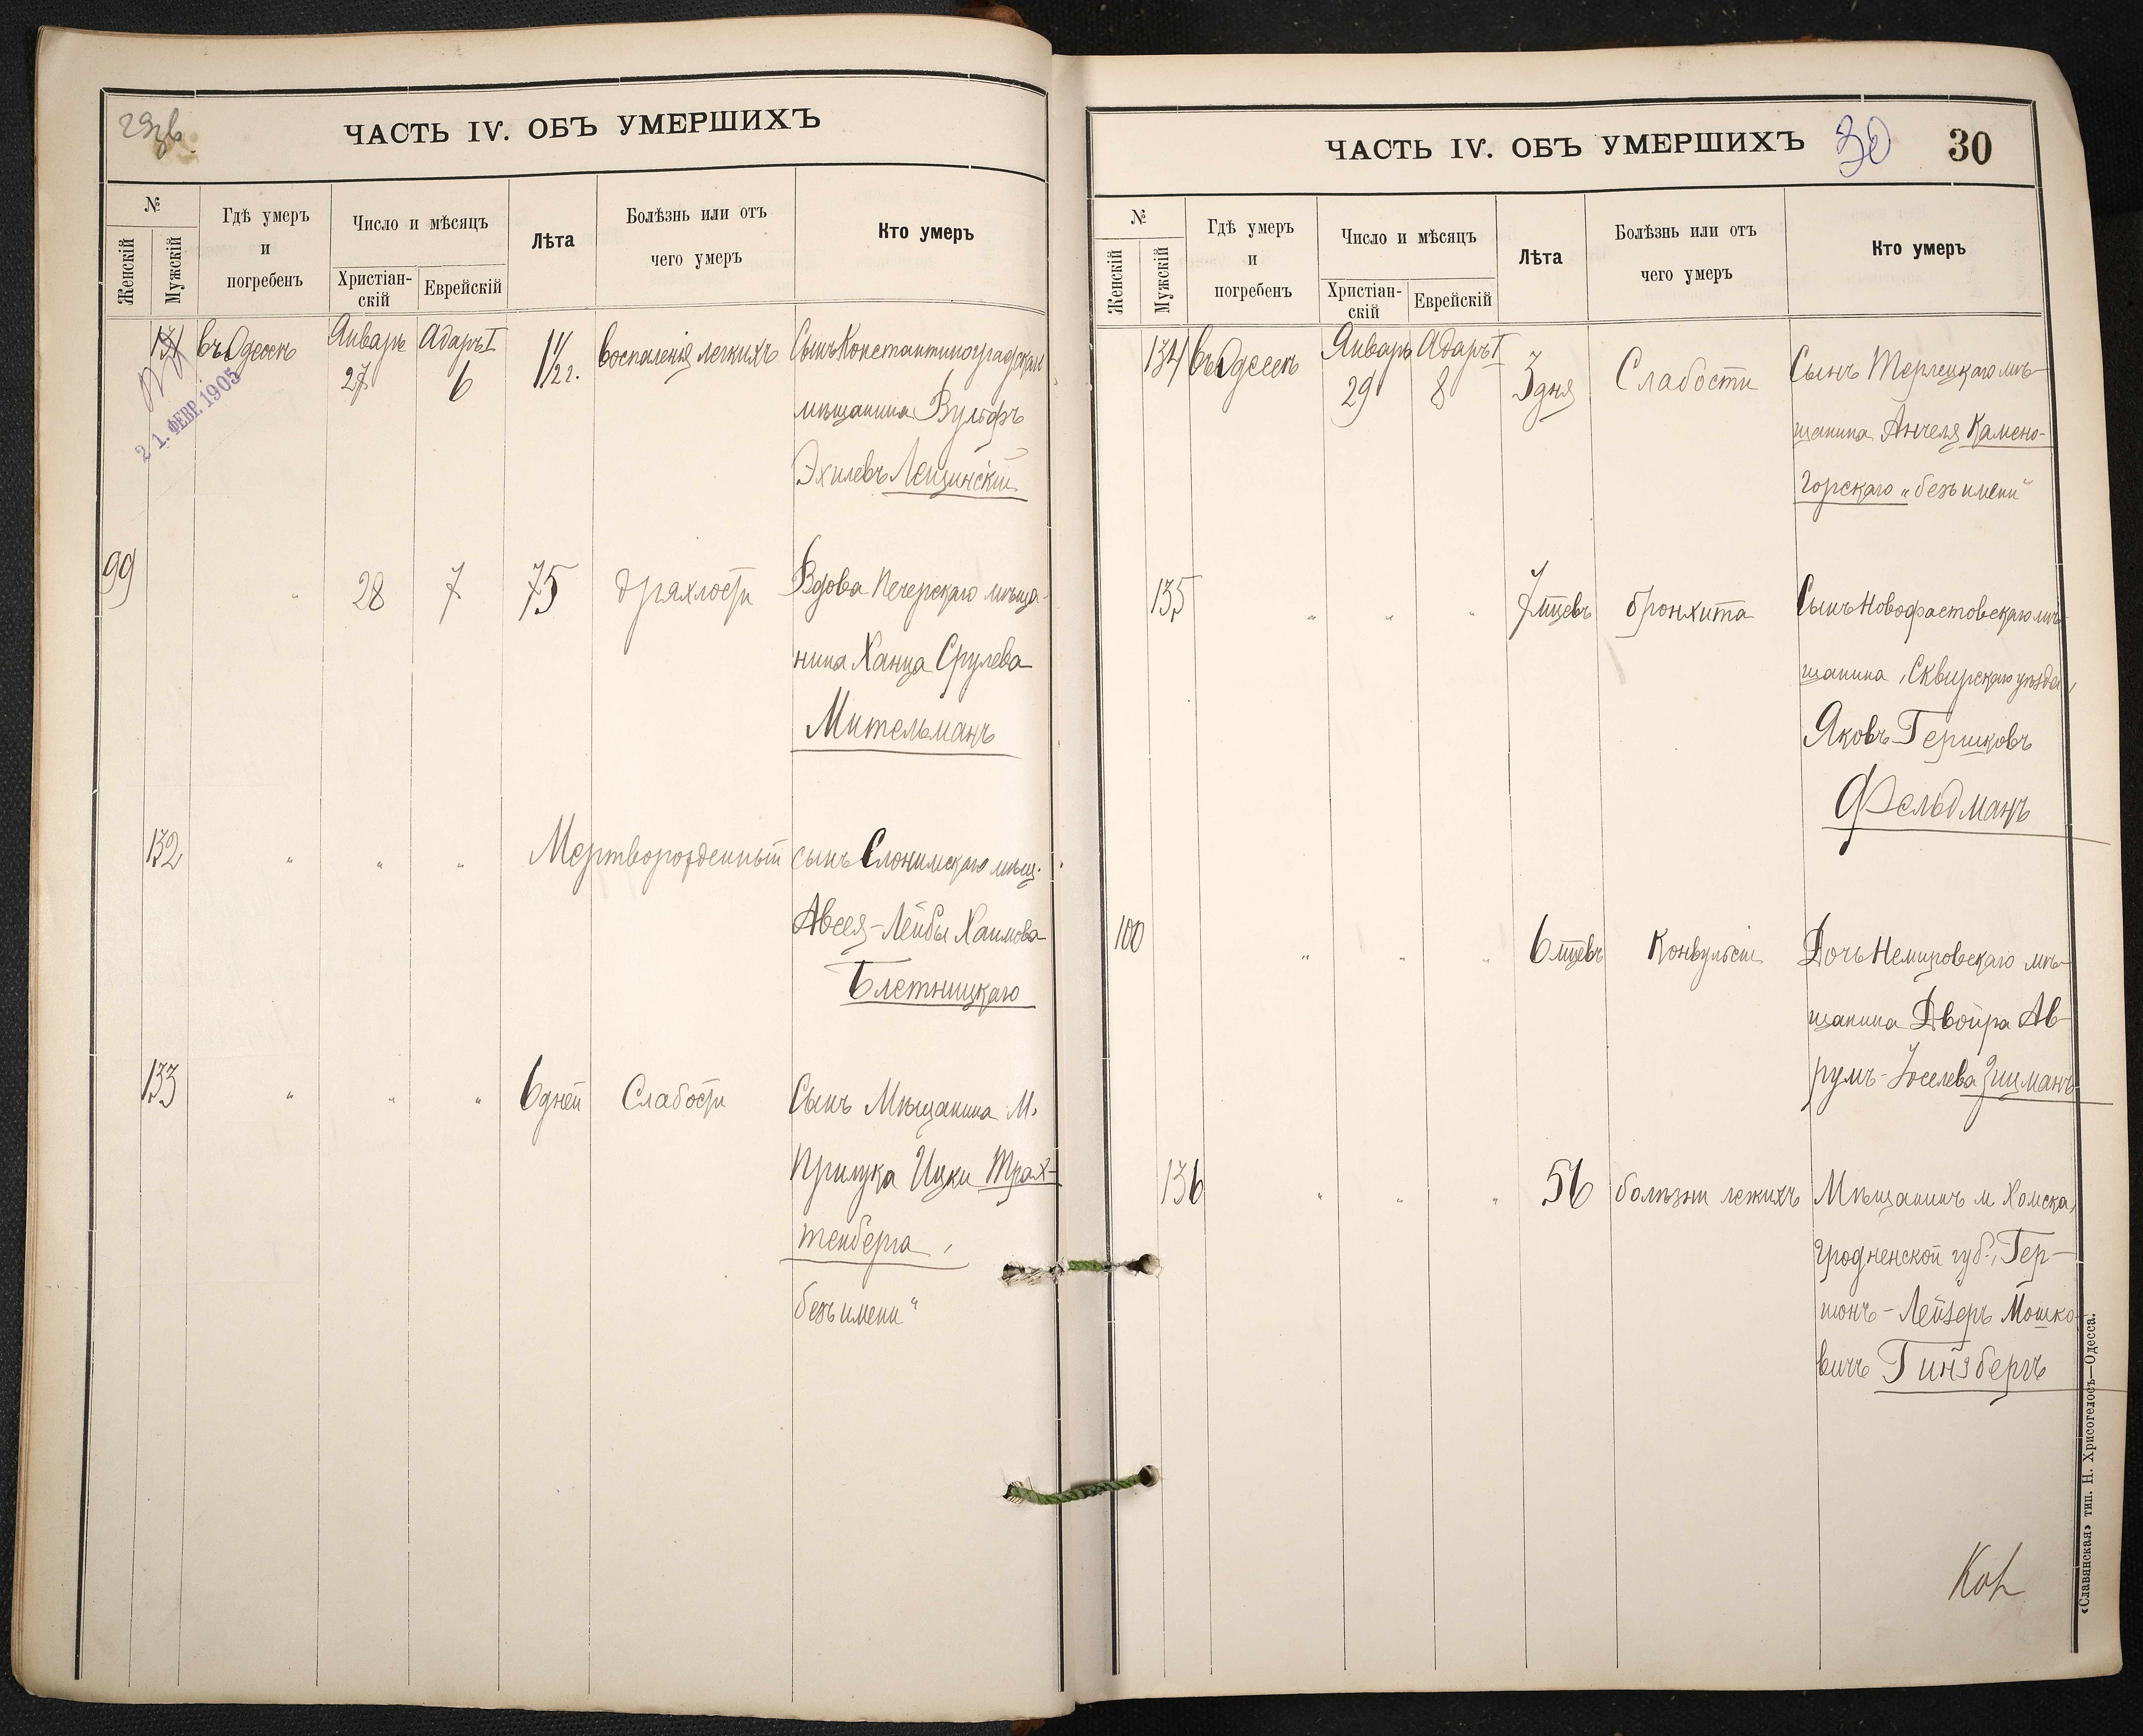 29 об.
ЧАСТЬ IV. ОБЪ УМЕРШИХЪ
№
Женскій
Мужскій
Гдѣ умеръ
и
погребенъ
Число и мѣсяцъ
Христіан-
скій
Еврейскій
Лѣта
Болѣзнь или отъ
чего умеръ
Кто умеръ
131 въ Одессѣ Январь 27 Адаръ I 6 1 1/2 г. воспаленія легкихъ Сынъ Константиноградскаго
мѣщанина Вульфъ
Эхилевъ Лещинскій
21. ФЕВР. 1905
99 " 28 7 75 дряхлости Вдова Печерскаго мѣща-
нина Ханца Срулева
Мительманъ
132 " " " Мертворожденный сынъ Слонимскаго мѣщ.
Авсея-Лейбы Хаимова
Блетницкаго
133 " " " 6 дней Слабости Сынъ Мѣщанина М.
Прилука Ицки Трах-
тенберга,
безъ имени"
ЧАСТЬ IV. ОБЪ УМЕРШИХЪ 30 30
№
Женскій
Мужскій
Гдѣ умеръ
и
погребенъ
Число и мѣсяцъ
Христіан-
скій
Еврейскій
Лѣта
Болѣзнь или отъ
чего умеръ
Кто умеръ
134 въ Одессѣ Январь 29 Адаръ I 8 3 дня Слабости Сынъ Терлецкаго мѣ-
щанина Анчеля Камено-
горскаго „безъ имени"
135 " " " 7 мцевъ бронхита Сынъ Новофастовскаго мѣ-
щанина, Сквирскаго уѣзда,
Яковъ Гершковъ
Фельдманъ
100 " " " 6 мцевъ Конвульсіи Дочь Немировскаго мѣ-
щанина Двойра Ав-
румъ-Іоселева Зицманъ
136 " " " 56 болѣзни легкихъ Мѣщанинъ м. Хомска,
Гродненской губ., Гер-
шонъ-Лейзеръ Мошко-
вичъ Гинзбергъ
«Славянская» тип. Н. Хрисогелосъ—Одесса.